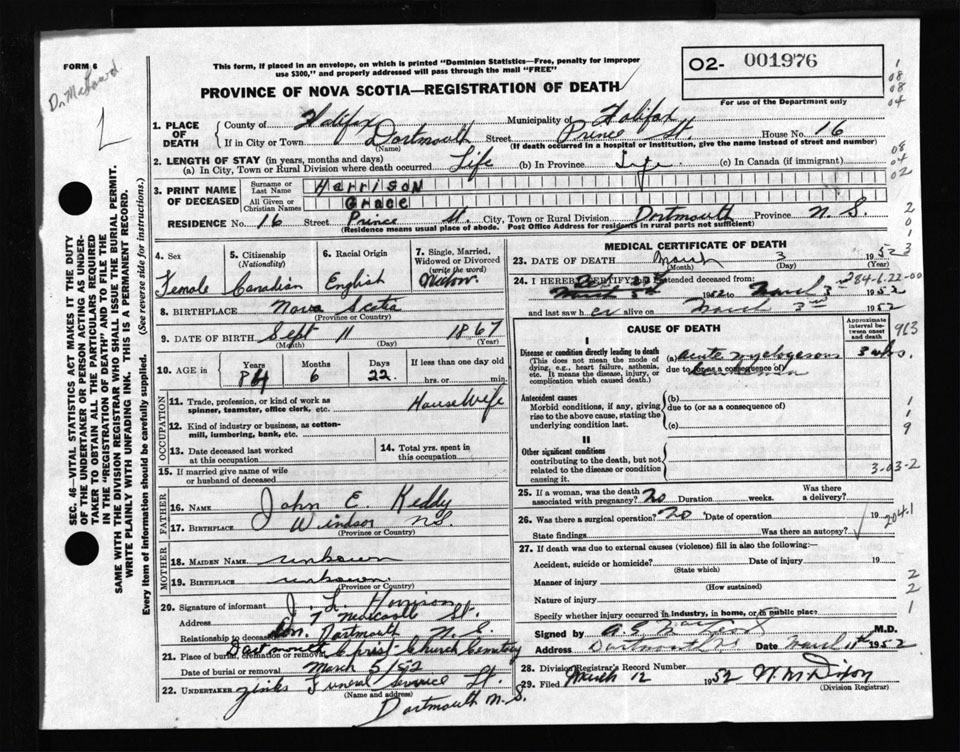 FORM 6
This form, if placed in an envelope, on which is printed "Dominion Statistics—Free, penalty for improper
use $300," and properly addressed will pass through the mail "FREE"
PROVINCE OF NOVA SCOTIA—REGISTRATION OF DEATH
02- 001976
For use of the Department only
1. PLACE OF DEATH
County of Halifax Municipality of Halifax
If in City or Town Dartmouth Street Prince St. House No. 16
(Name) (If death occurred in a hospital or institution, give the name instead of street and number)
2. LENGTH OF STAY (in years, months and days)
(a) In City, Town or Rural Division where death occurred Life (b) In Province Life (c) In Canada (if immigrant)
3. PRINT NAME OF DECEASED
Surname or Last Name Harrison
All Given or Christian Names Grace
RESIDENCE No. 16 Street Prince St. City, Town or Rural Division Dartmouth Province N.S.
(Residence means usual place of abode. Post Office Address for residents in rural parts not sufficient)
4. Sex
Female
5. Citizenship
(Nationality)
Canadian
6. Racial Origin
English
7. Single, Married,
Widowed or Divorced
(write the word)
Widow.
8. BIRTHPLACE Nova Scotia
(Province or Country)
9. DATE OF BIRTH Sept 11 1867
(Month) (Day) (Year)
10. AGE in
Years Months Days If less than one day old
84 6 22. hrs. or min.
OCCUPATION
11. Trade, profession, or kind of work as
spinner, teamster, office clerk, etc. HouseWife
12. Kind of industry or business, as cotton-
mill, lumbering, bank, etc.
13. Date deceased last worked
at this occupation
14. Total yrs. spent in
this occupation
15. If married give name of wife
or husband of deceased
FATHER
16. NAME John E. Keddy
17. BIRTHPLACE Windsor N.S.
MOTHER
18. MAIDEN NAME unknown
19. BIRTHPLACE unknown.
(Province or Country)
20. Signature of informant J. L. Harrison
Address 7 St.
Relationship to deceased Son. Dartmouth N.S.
21. Place of burial, cremation or removal Dartmouth Christ Church Cemetery
Date of burial or removal March 5/52
22. UNDERTAKER Zinks Funeral Service Lt.
(Name and address)
Dartmouth N.S.
MEDICAL CERTIFICATE OF DEATH
23. DATE OF DEATH March 3 1952
(Month) (Day) (Year)
24. I HEREBY CERTIFY attended deceased from:
1952 to March 3 1952
and last saw her alive on March 3rd 1952
CAUSE OF DEATH
Approximate
interval be-
tween onset
and death
I
Disease or condition directly leading to death
(This does not mean the mode of
dying, e.g., heart failure, asthenia,
etc. It means the disease, injury, or
complication which caused death.)
(a) acute myelogenous 3 wks.
due to (or as a consequence of)
Antecedent causes
Morbid conditions, if any, giving
rise to the above cause, stating the
underlying condition last.
(b)
due to (or as a consequence of)
(c)
II
Other significant conditions
contributing to the death, but not
related to the disease or condition
causing it.
25. If a woman, was the death
associated with pregnancy? no Duration weeks. Was there
a delivery?
26. Was there a surgical operation? no Date of operation 19
State findings Was there an autopsy?
27. If death was due to external causes (violence) fill in also the following:—
Accident, suicide or homicide? Date of injury 19
(State which)
Manner of injury
(How sustained)
Nature of injury
Specify whether injury occurred in industry, in home, or in public place?
Signed by M.D.
Address Dartmouth Date March 11th 1952
28. Division Registrar's Record Number
29. Filed March 12 1952 W. M. Dixon
(Division Registrar)
SEC. 46—VITAL STATISTICS ACT MAKES IT THE DUTY
OF THE UNDERTAKER OR PERSON ACTING AS UNDER-
TAKER TO OBTAIN ALL THE PARTICULARS REQUIRED
IN THE "REGISTRATION OF DEATH" AND TO FILE THE
SAME WITH THE DIVISION REGISTRAR WHO SHALL ISSUE THE BURIAL PERMIT.
WRITE PLAINLY WITH UNFADING INK. THIS IS A PERMANENT RECORD.
Every item of information should be carefully supplied. (See reverse side for instructions.)
284-6.22-00
963
3-03-2
2041